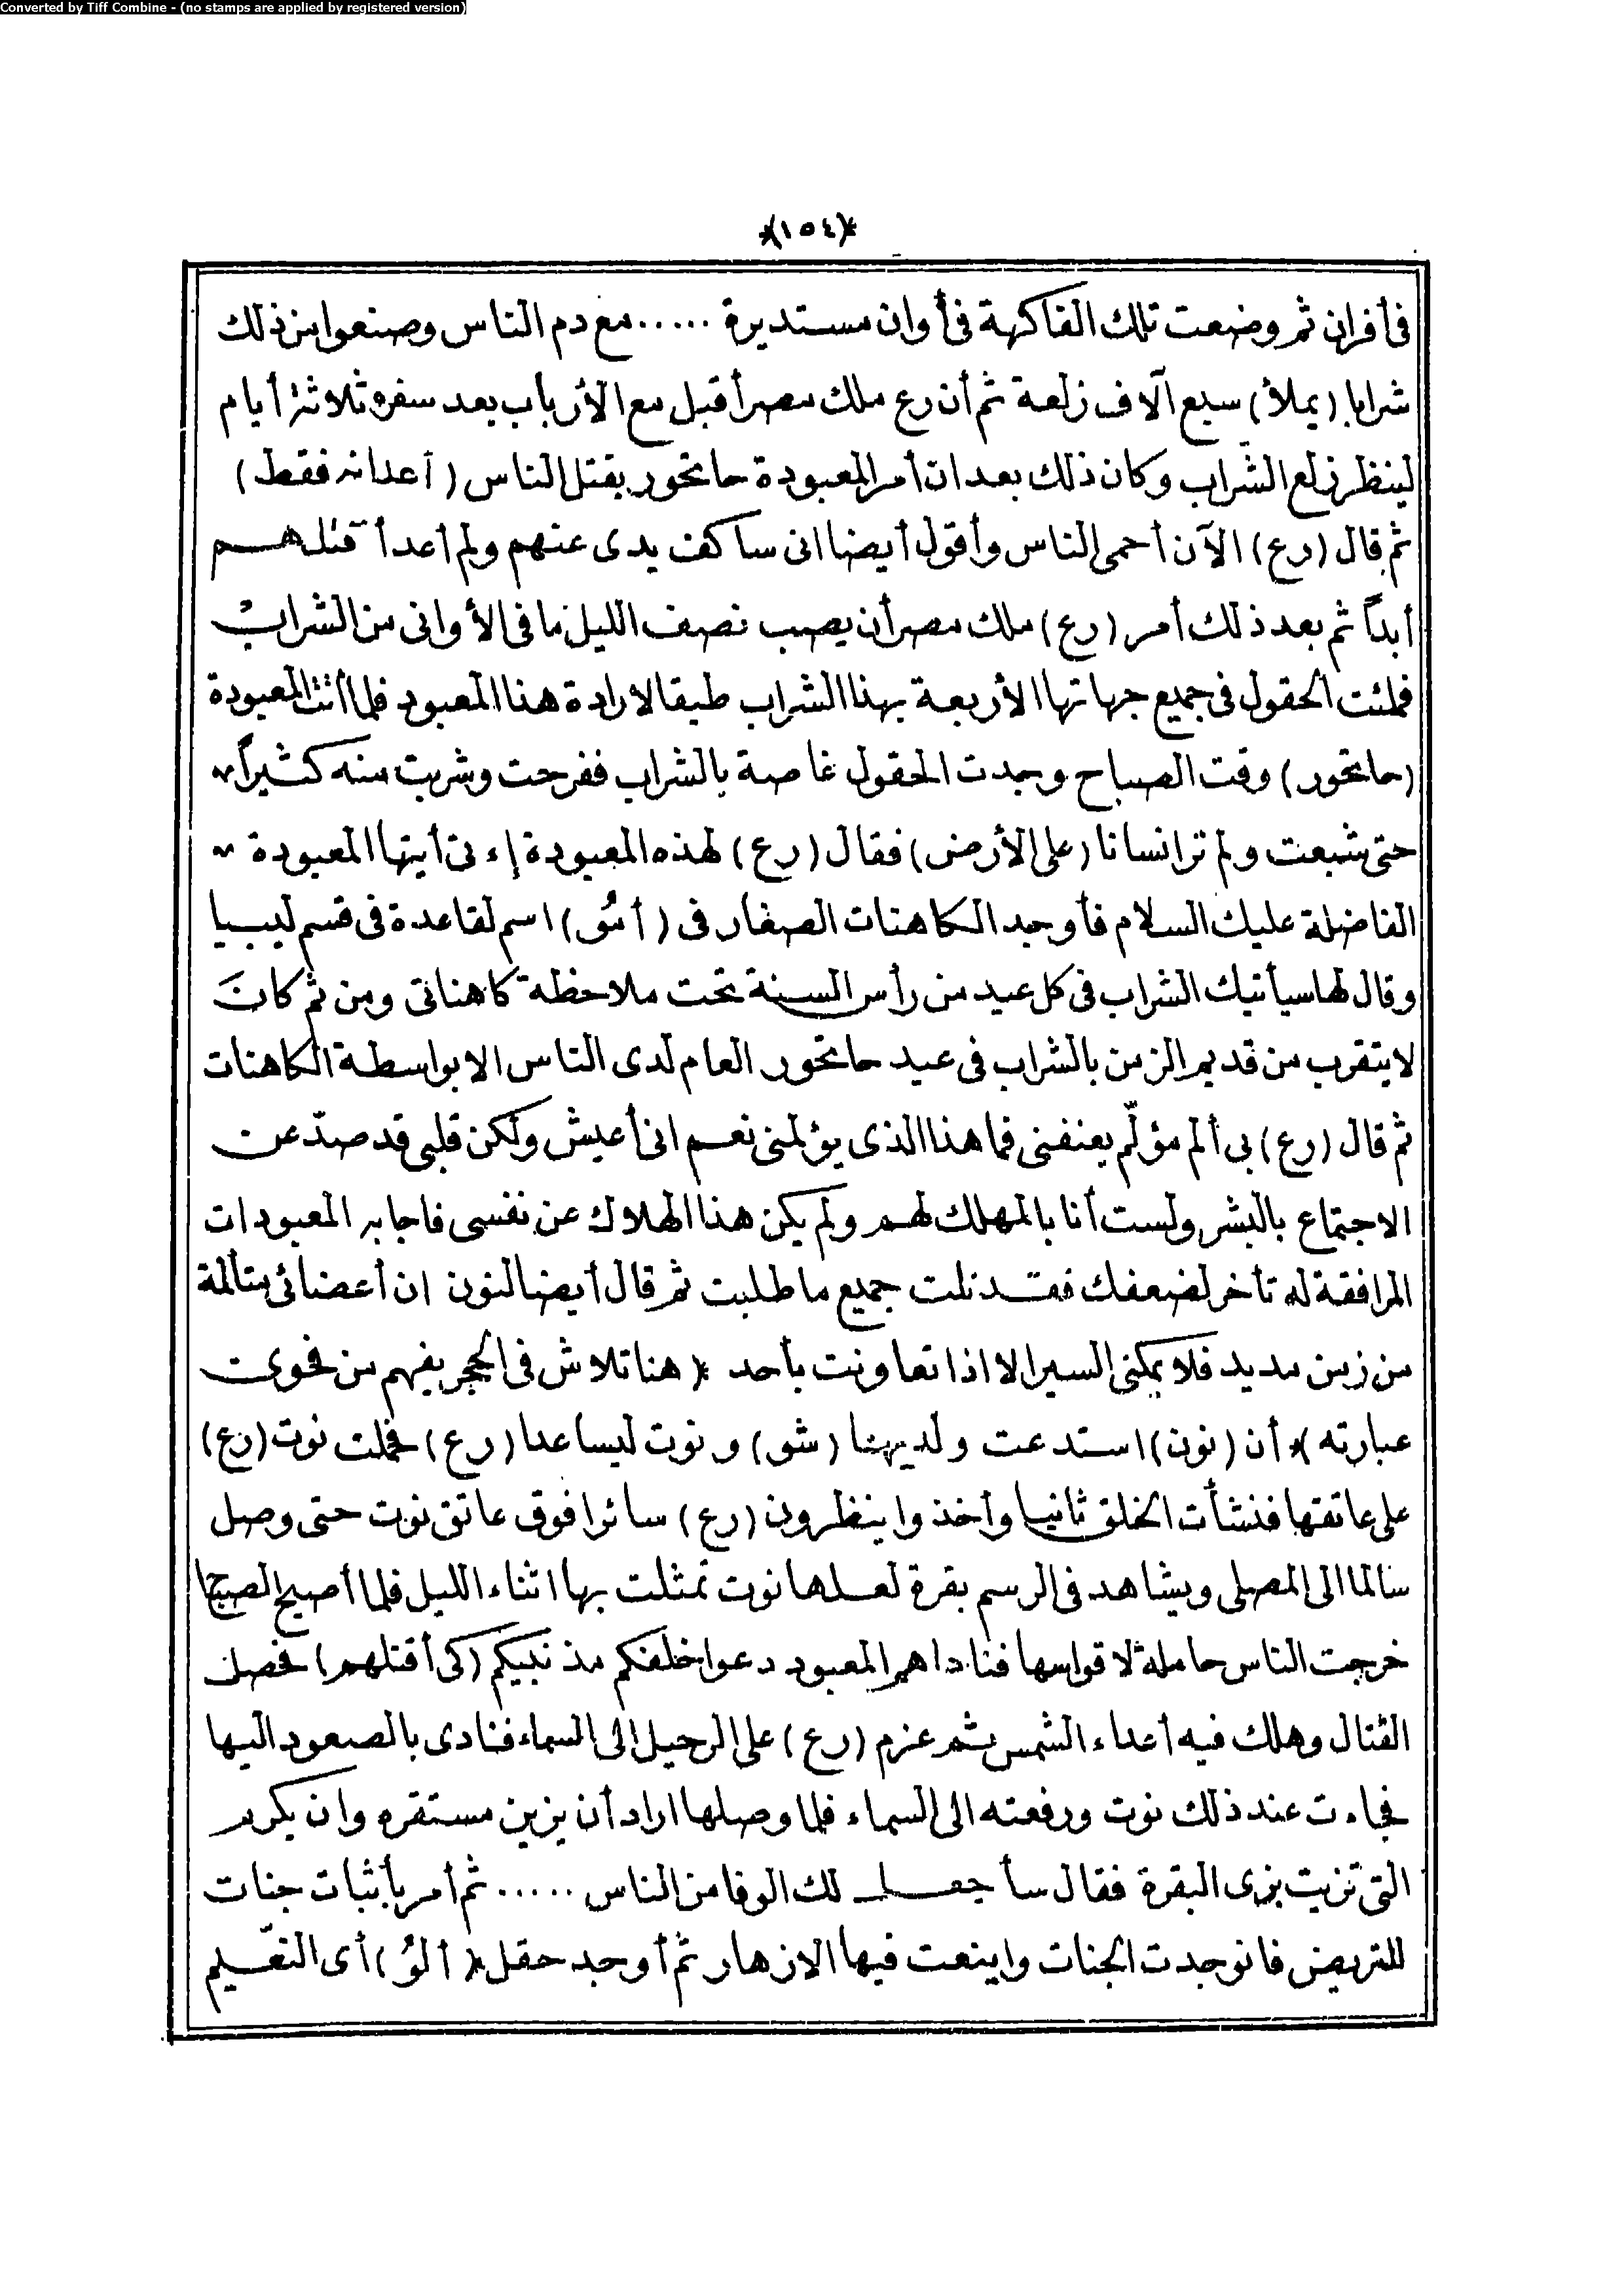 Converted by Tiff Combine - (no stamps are applied by registered version)
*(١٥٤)*
فى أفران ثم وضعت تلك الفاكهة فى أوان مستديرة ..... مع دم الناس وصنعوا من ذلك
شرابا (يملأ) سبع آلاف زلعة ثم أن رع ملك مصر أقبل مع الأرباب بعد سفره ثلاثة أيام
لينظر زلع الشراب وكان ذلك بعد ان أمر المعبودة حاتحور بقتل الناس (أعدائه فقط)
ثم قال (رع) الآن أحمى الناس وأقول أيضا انى سأكف يدى عنهم ولم أعد أقتلهم
أبداً ثم بعد ذلك أمر (رع) ملك مصر أن يصب نصف الليل ما فى الأوانى من الشراب
فملئت الحقول فى جميع جهاتها الأربعة بهذا الشراب طبقا لارادة هذا المعبود فلما أتت المعبودة
(حاتحور) وقت الصباح وجدت الحقول غاصة بالشراب ففرحت وشربت منه كثيراً
حتى شبعت ولم تر انسانا (على الأرض) فقال (رع) لهذه المعبودة إءتى أيتها المعبودة
الفاضلة عليك السلام فأوجد الكاهنات الصغار فى (أمُو) اسم لقاعدة فى قسم ليبيا
وقال لها سيأتيك الشراب فى كل عيد من رأس السنة تحت ملاحظة كاهناتى ومن ثم كان
لا يتقرب من قديم الزمن بالشراب فى عيد حاتحور العام لدى الناس الا بواسطة الكاهنات
ثم قال (رع) بى ألم مؤلّم يعنفنى فما هذا الذى يؤلمنى نعم انى أعيش ولكن قلبى قد صدّ عن
الاجتماع بالبشر ولست أنا بالمهلك لهم ولم يكن هذا الهلاك عن نفسى فاجابه المعبودات
المرافقة له تأخر لضعفك فقد نلت جميع ما طلبت ثم قال أيضا لنون ان أعضائى متألمة
من زمن مديد فلا يمكنى السير الا اذا تعاونت بأحد * (هنا تلاش فى الحجر يفهم من فحوى
عبارته)* أن (نون) استدعت ولديها (شو) و نوت ليساعدا (رع) فحملت نوت (رع)
على عاتقها فنشأت الخلق ثانيا وأخذوا ينظرون (رع) سائرا فوق عاتق نوت حتى وصل
سالما الى المصلى ويشاهد فى الرسم بقرة لعلها نوت تمثلت بها اثناء الليل فلما أصبح الصباح
خرجت الناس حاملة لاقواسها فناداهم المعبود دعوا خلفكم مذنبيكم (كى أقتلهم) فحصل
القتال وهلك فيه أعداء الشمس ثم عزم (رع) على الرحيل الى السماء فنادى بالصعود اليها
فجاءت عند ذلك نوت ورفعته الى السماء فلما وصلها اراد أن يزين مستقره وان يكرم
التى تزيت بزى البقرة فقال سأجعل لك الوفا من الناس ..... ثم أمر بأثبات جنات
للتريض فانوجدت الجنات واينعت فيها الازهار ثم أوجد حقل *(ألوُ) أى النعيم